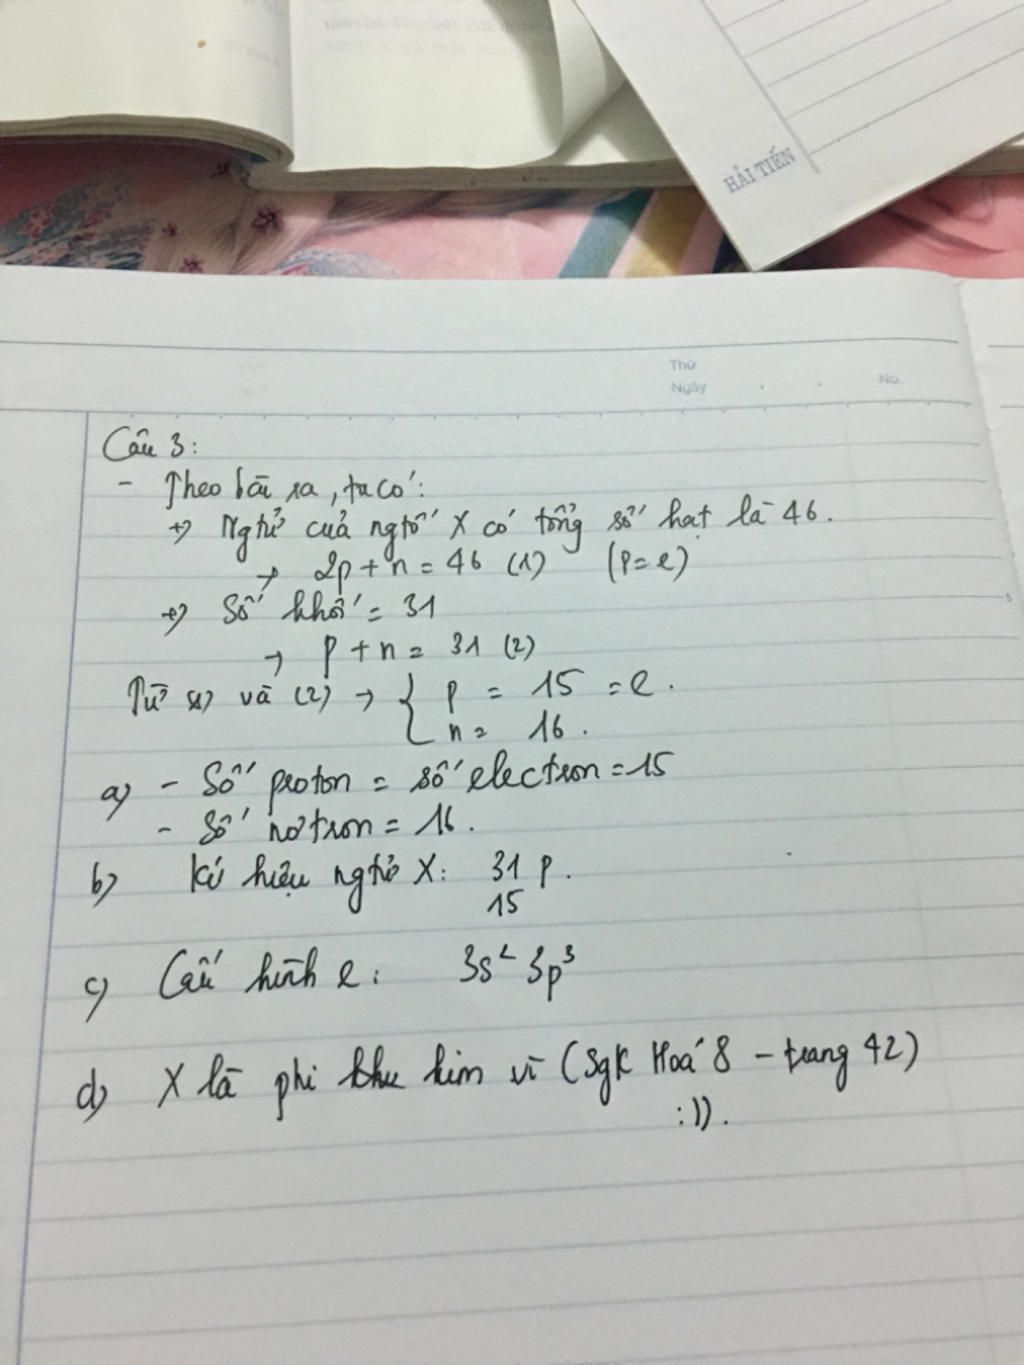 HẢI TIẾN
Thứ
Ngày
No.
Câu 3:
- Theo bài ra, ta có:
+) Ngtử của ngtố X có tổng số hạt là 46.
→ 2p + n = 46 (1) (p = e)
+) Số khối = 31
→ p + n = 31 (2)
Từ (1) và (2) → { p = 15 = e.
n = 16.
a) - Số proton = số electron = 15
- Số nơtron = 16.
b) Kí hiệu ngtử X: 31 P.
15
c) Cấu hình e: 3s² 3p³
d) X là phi khu kim vì (Sgk Hoá 8 - trang 42)
:)).